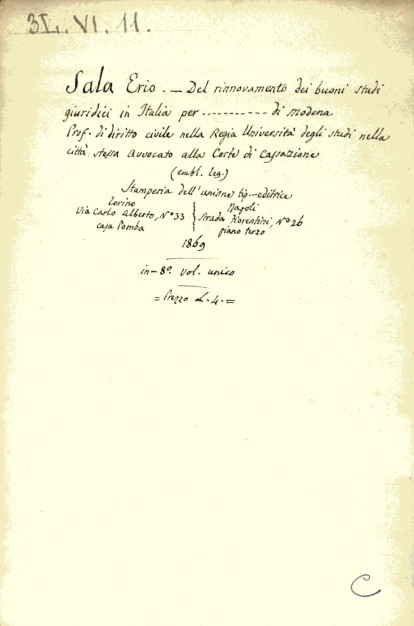 3L.VI.11.
Sala Erio. — Del rinnovamento dei buoni studi
giuridici in Italia per ---------- di Modena
Prof. di diritto civile nella Regia Università degli studi nella
città stessa Avvocato alla Corte di Cassazione
(embl. leg.)
Stamperia dell'unione tip.-editrice
Torino
via Carlo Alberto, N° 33
casa Pomba
Napoli
Strada Fiorentini, N° 26
piano terzo
1869
in-8°. vol. unico
= Prezzo L. 4. =
C